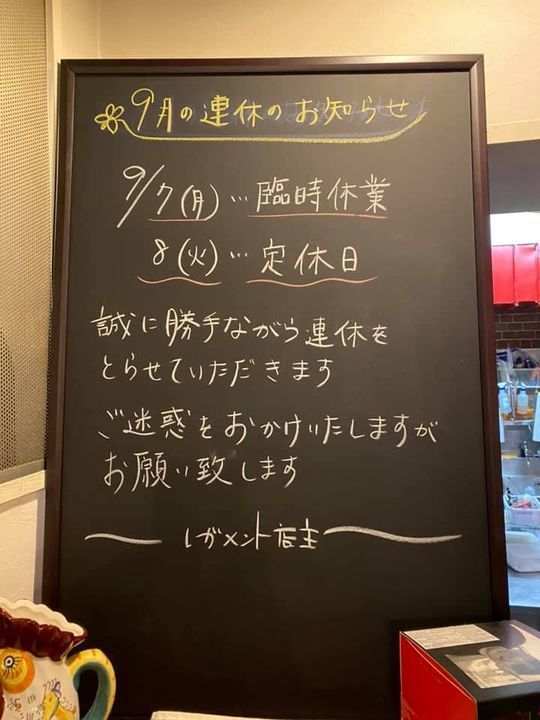 9月の連休のお知らせ
9/7(月)…臨時休業
8(火)…定休日
誠に勝手ながら連休を
とらせていただきます
ご迷惑をおかけいたしますが
お願い致します
レガメント店主